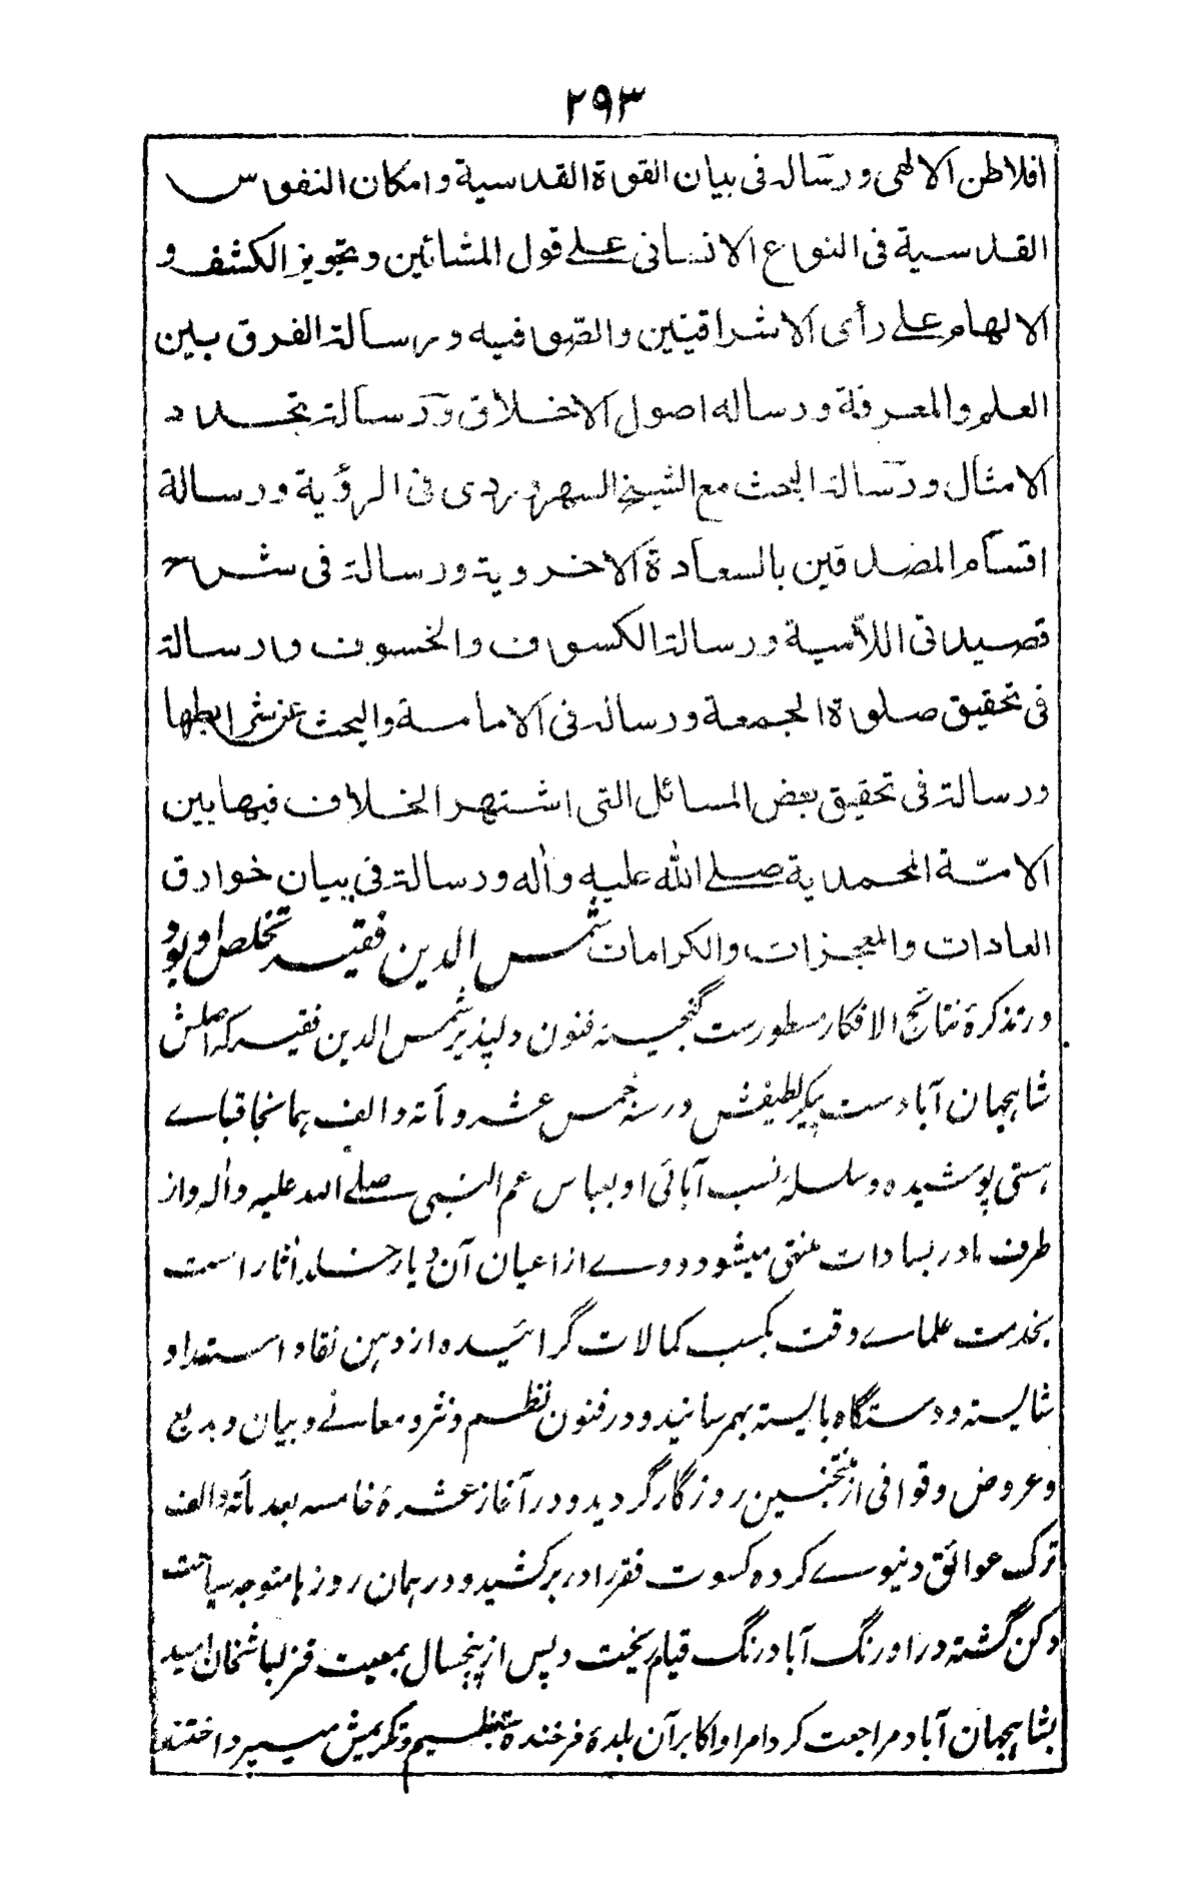 ۲۹۳
افلاطن الالهی ورساله فی بیان القوة القدسیة وامکان النفوس
القدسیة فی النوع الانسانی علے قول المشائین وتجویز الکشف و
الالهام علے رأی الاشراقیین والصّوفیه ورسالة الفرق بین
العلم والمعرفة ورساله اصول الاخلاق ورسالة تجدد
الامثال ورسالة البحث مع الشیخ السهروردی فی الرؤیة ورسالة
اقسام المصدقین بالسعادة الاخرویة ورسالة فی شرح
قصیدتی اللّامیة ورسالة الکسوف والخسوف ورسالة
فی تحقیق صلوة الجمعة ورساله فی الامامة والبحث عن شرایطها
ورسالة فی تحقیق بعض المسائل التی اشتهر الخلاف فیها بین
الامّة المحمدیة صلے الله علیه واٰله ورسالة فی بیان خوارق
العادات والمعجزات والکرامات شمس الدین فقیر تخلص او بود
در تذکرهٔ نتائج الافکار مسطورست گنجینهٔ فنون دلپذیر شمس الدین فقیر که اصلش
شاہجہان آبادست پیکر لطیفش در سنه خمس عشر و مأته و الف ہمانجا قباے
ہستی پوشیده و سلسلهٔ نسب آبائی او بعباس عم النبی صلے الله علیه واٰله و از
طرف مادر بسادات منتهی میشود و وے از اعیان آن دیار خلد آثار است
بخدمت علماے وقت بکسب کمالات گرائیده و از ذہن نقاد استعداد
شایسته و دستگاه بایسته بهمرسانید و در فنون نظم و نثر و معانے و بیان و بدیع
و عروض و قوافی از منتخبین روزگار گردید و در آغاز عشرهٔ خامسه بعد مأته و الف
ترک عوائق دنیوے کرده کسوت فقر را در بر کشید و در ہمان روزہا متوجه سیاحت
دکن گشته در اورنگ آباد رنگ قیام ریخت و پس از پنجسال بمعیت قزلباشخان امید
بشاہجہان آباد مراجعت کرد امرا و اکابر آن بلدهٔ فرخنده بتعظیم و تکریمش میپرداختند